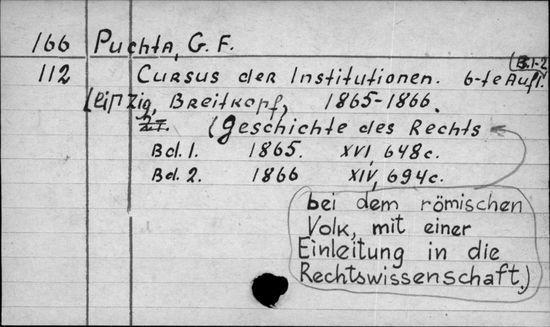 166 Puchta, G. F.
(B. 1-2)
112 Cursus der Institutionen. 6-te Aufl.
Leipzig, Breitkopf, 1865-1866.
(Geschichte des Rechts
Bd. 1. 1865. XVI, 648 с.
Bd. 2. 1866 XIV, 694 с.
bei dem römischen
Volk, mit einer
Einleitung in die
Rechtswissenschaft.)